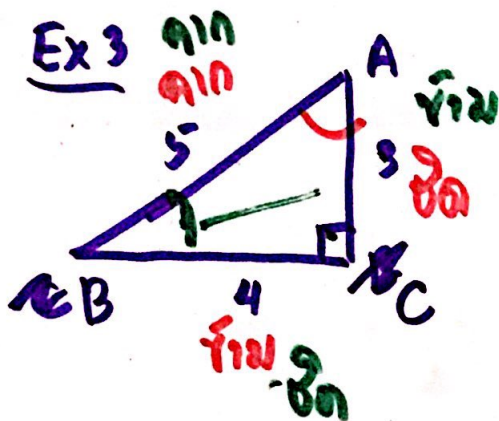 Ex 3 ฉาก
ฉาก
A
5
ข้าม
3
ชิด
B
4
C
ข้าม
ชิด